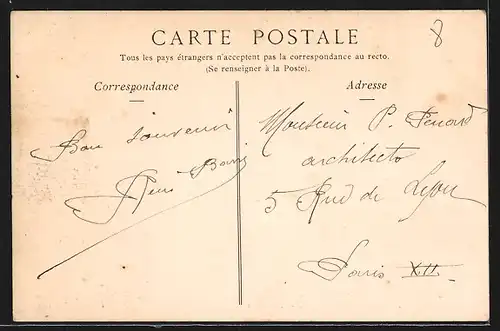 8
CARTE POSTALE
Tous les pays étrangers n'acceptent pas la correspondance au recto.
(Se renseigner à la Poste).
Correspondance
Adresse
Bon souvenir
Monsieur P. Penard
architecte
5 Rue de Lyon
Paris XII